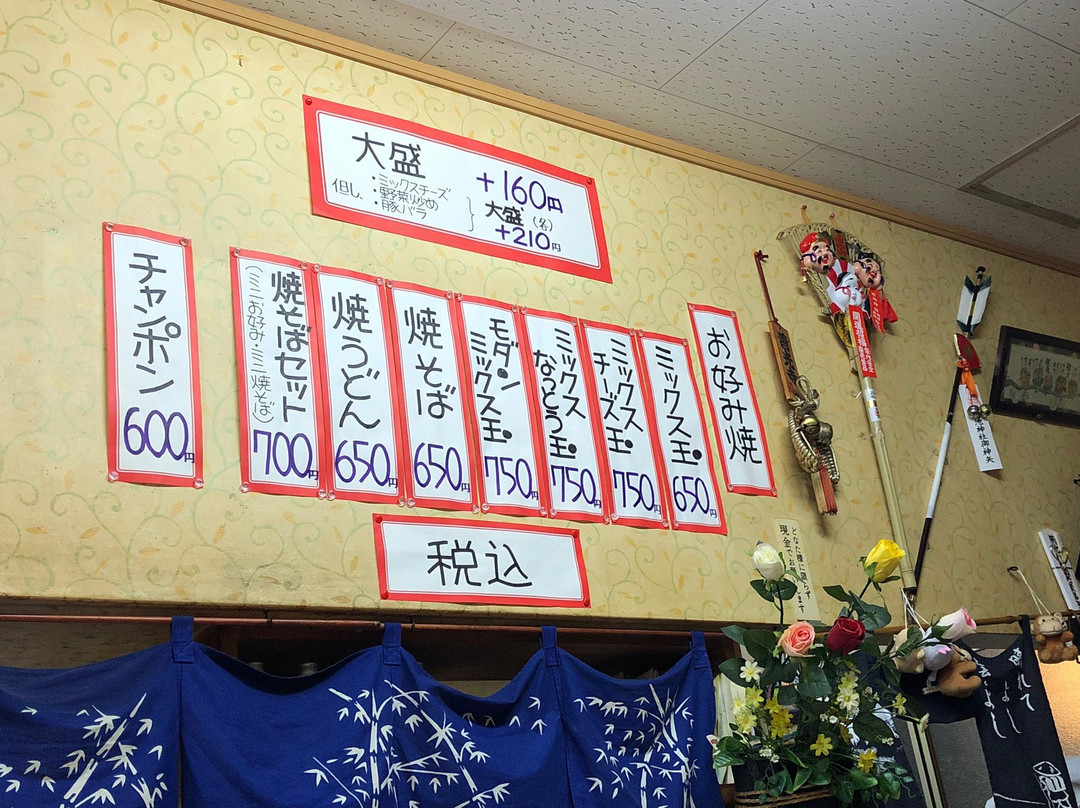 大盛 +160円
但し、・ミックスチーズ
・野菜炒め
・豚バラ
大盛(各)
+210円
お好み焼
ミックス玉 650円
ミックス
チーズ玉 750円
ミックス
なっとう玉 750円
モダン
ミックス玉 750円
焼そば 650円
焼うどん 650円
焼そばセット
(ミニお好み・ミニ焼そば)
700円
チャンポン 600円
税込
どなた様に限らず
神社御神矢
晴れて
よし